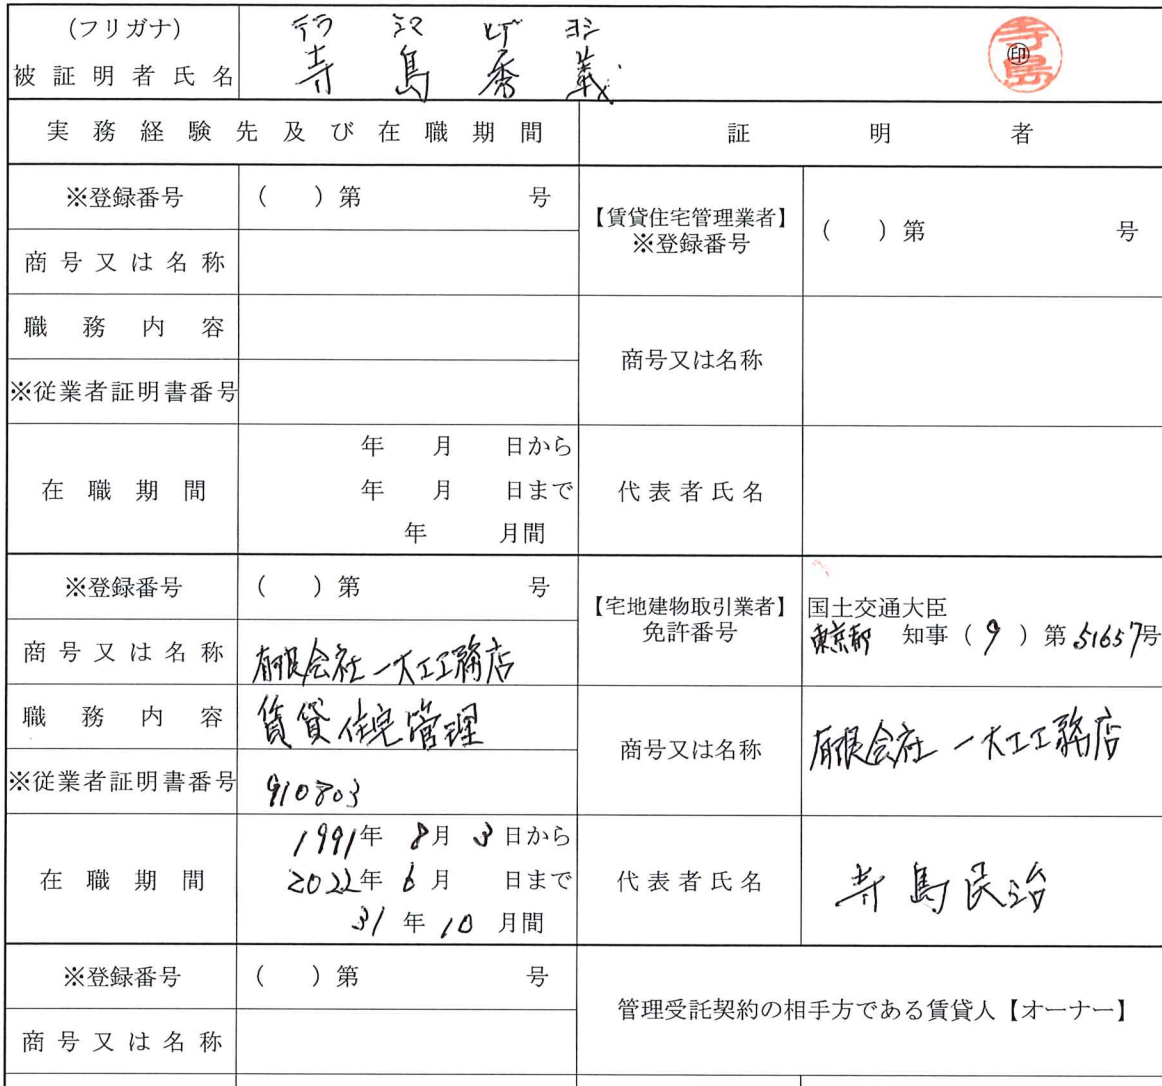 (フリガナ) テラ シマ ヒデ ヨシ
被証明者氏名 寺島秀義 ㊞ 寺島
実務経験先及び在職期間 証明者
※登録番号 ( )第 号
【賃貸住宅管理業者】
※登録番号 ( )第 号
商号又は名称
職務内容
商号又は名称
※従業者証明書番号
在職期間
年 月 日から
年 月 日まで
年 月間
代表者氏名
※登録番号 ( )第 号
【宅地建物取引業者】
免許番号
国土交通大臣
東京都 知事(9)第51657号
商号又は名称 有限会社一大工務店
職務内容 賃貸住宅管理
商号又は名称 有限会社一大工務店
※従業者証明書番号 910803
在職期間
1991年 8月 3日から
2022年 6月 日まで
31年10月間
代表者氏名 寺島民治
※登録番号 ( )第 号
管理受託契約の相手方である賃貸人【オーナー】
商号又は名称